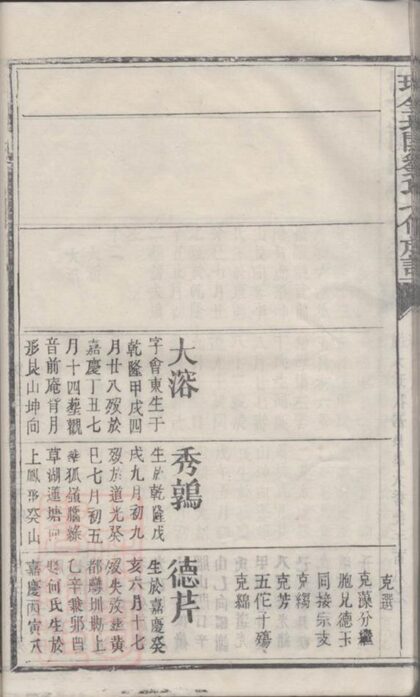 六修族譜
大溶
字會東生于
乾隆甲戌四
月廿八歿於
嘉慶丁丑七
月十四葬觀
音前庵肯月
形艮山坤向
秀鶉
生於乾隆戊
戌九月初九
歿於道光癸
巳七月初五
葬狐嶺
草湖蓮塘
上鳳形癸山
克選
克藻分繼
胞兄德玉
同接宗支
克綢
克芳
五佗子殤
克綿
德芹
生於嘉慶癸
亥六月十七
歿失攷葬黃
都圳坳上
乙辛兼卯酉
娶何氏生於
嘉慶丙寅八